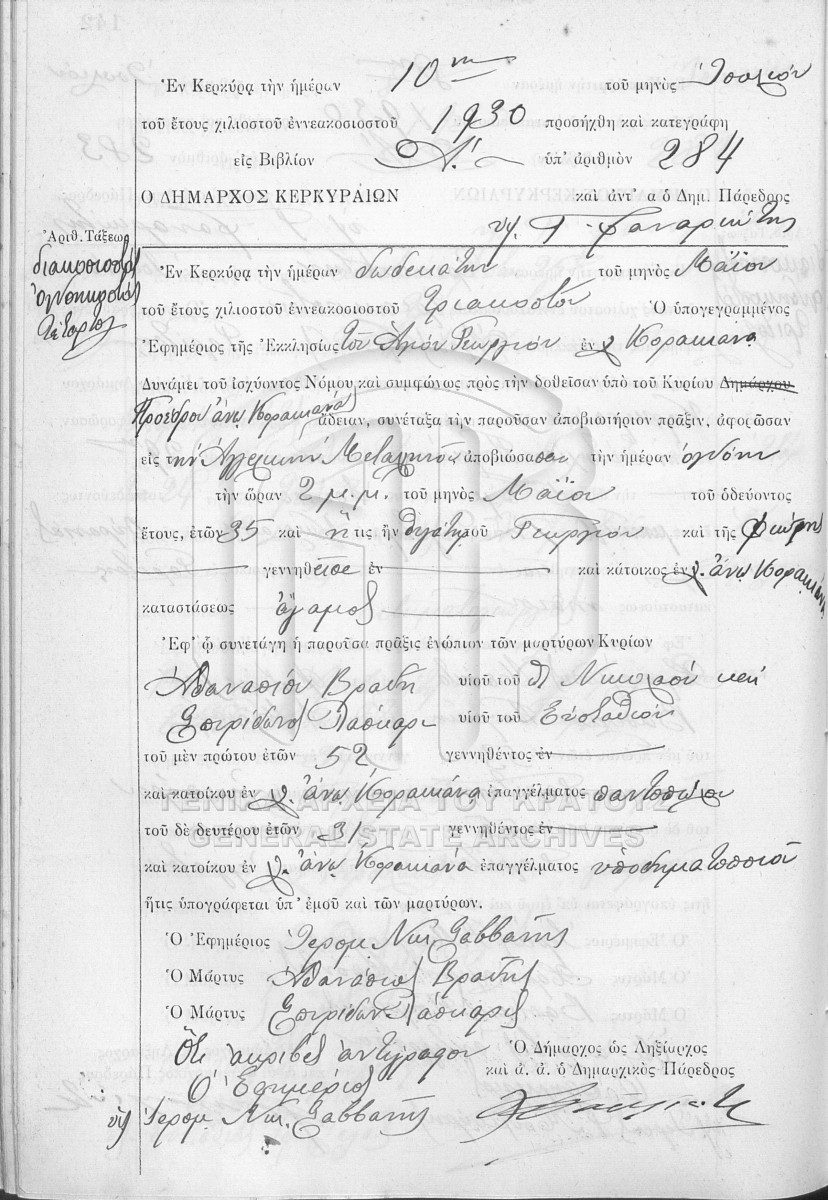 Ἐν Κερκύρᾳ τὴν ἡμέραν 10ην τοῦ μηνὸς
τοῦ ἔτους χιλιοστοῦ ἐννεακοσιοστοῦ 1930 προσήχθη καὶ κατεγράφη
εἰς Βιβλίον Α. ὑπ' ἀριθμὸν 284
Ο ΔΗΜΑΡΧΟΣ ΚΕΡΚΥΡΑΙΩΝ καὶ ἀντ' α ὁ Δημ. Πάρεδρος
Ἀριθ. Τάξεως
διακοσιοστὸς
ὀγδοηκοστὸς
τέταρτος
Ἐν Κερκύρᾳ τὴν ἡμέραν δωδεκάτην τοῦ μηνὸς Μαΐου
τοῦ ἔτους χιλιοστοῦ ἐννεακοσιοστοῦ τριακοστοῦ Ὁ ὑπογεγραμμένος
Ἐφημέριος τῆς Ἐκκλησίας τοῦ Ἁγίου Γεωργίου ἐν χ. Κορακιάνα
Δυνάμει τοῦ ἰσχύοντος Νόμου καὶ συμφώνως πρὸς τὴν δοθεῖσαν ὑπὸ τοῦ Κυρίου Δημάρχου
Προέδρου ἄνω Κορακιάνας ἄδειαν, συνέταξα τὴν παροῦσαν ἀποβιωτήριον πρᾶξιν, ἀφορῶσαν
εἰς τὴν Ἀγγελικὴν ἀποβιώσασαν τὴν ἡμέραν ὀγδόην
τὴν ὥραν 2 μ.μ. τοῦ μηνὸς Μαΐου τοῦ ὁδεύοντος
ἔτους, ἐτῶν 35 καὶ ἥτις ἦν θυγάτηρ τοῦ Γεωργίου καὶ τῆς
γεννηθεῖσα ἐν καὶ κάτοικος ἐν χ. ἄνω Κορακιάνα
καταστάσεως ἄγαμος
Ἐφ' ᾧ συνετάγη ἡ παροῦσα πρᾶξις ἐνώπιον τῶν μαρτύρων Κυρίων
Ἀθανασίου Βραδῆ υἱοῦ τοῦ Νικολάου καὶ
Σπυρίδωνος Πάσκαρι υἱοῦ τοῦ Εὐσταθίου
τοῦ μὲν πρώτου ἐτῶν 52 γεννηθέντος ἐν
καὶ κατοίκου ἐν χ. ἄνω Κορακιάνα ἐπαγγέλματος παντοπώλου
ΓΕΝΙΚΑ ΑΡΧΕΙΑ ΤΟΥ ΚΡΑΤΟΥΣ
τοῦ δὲ δευτέρου ἐτῶν 31 γεννηθέντος ἐν
GENERAL STATE ARCHIVES
καὶ κατοίκου ἐν χ. ἄνω Κορακιάνα ἐπαγγέλματος ὑποδηματοποιοῦ
ἥτις ὑπογράφεται ὑπ' ἐμοῦ καὶ τῶν μαρτύρων.
Ὁ Ἐφημέριος Ἱερομ. Νικ. Σαββανῆς
Ὁ Μάρτυς Ἀθανάσιος Βραδῆς
Ὁ Μάρτυς Σπυρίδων Πάσκαρις
Ὅτι ἀκριβὲς ἀντίγραφον Ὁ Δήμαρχος ὡς Ληξίαρχος
Ὁ Ἐφημέριος καὶ ἀ. ἀ. ὁ Δημαρχικὸς Πάρεδρος
Ἱερομ. Νικ. Σαββανῆς